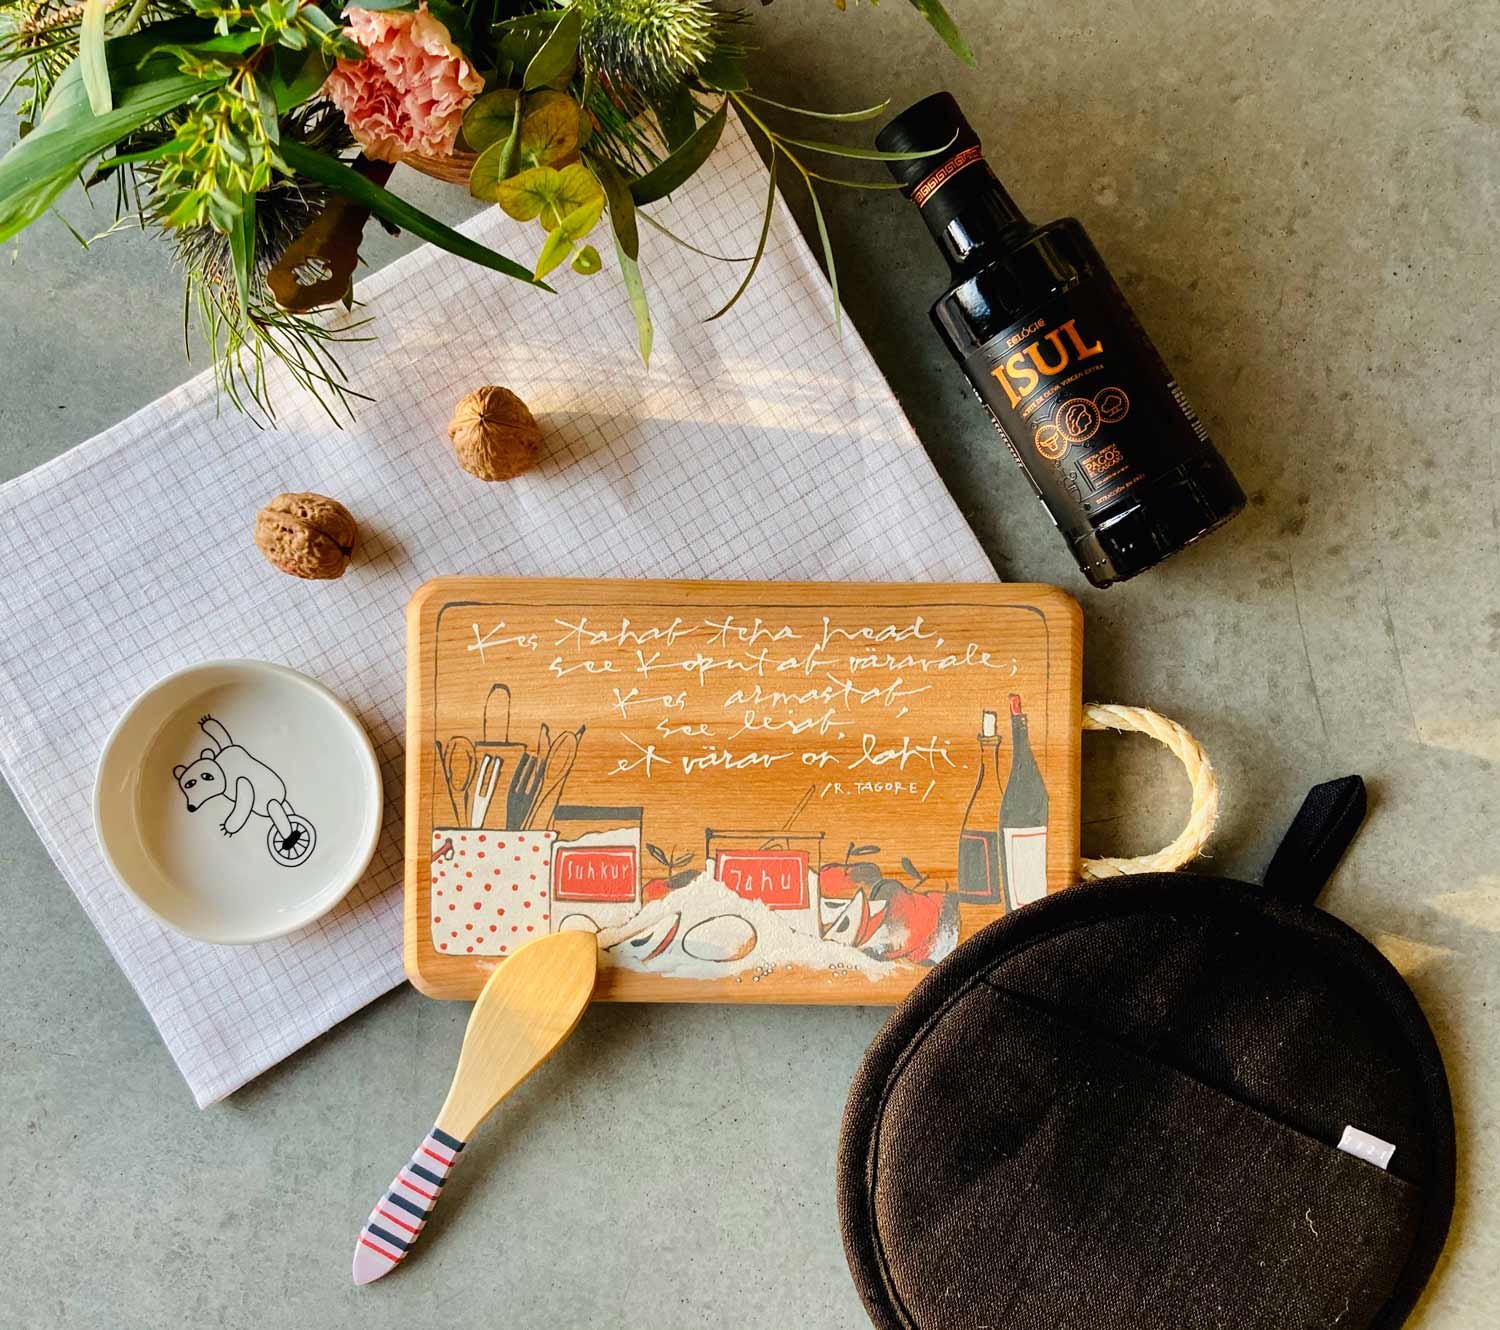 ECOLÓGICO
ISUL
ACEITE DE OLIVA VIRGEN EXTRA
PAGOS
EXTRACCIÓN EN FRÍO
Kes tahab teha head,
see koputab väravale;
Kes armastab,
see leiab,
et värav on lahti.
/R. TAGORE/
Suhkur
Jahu